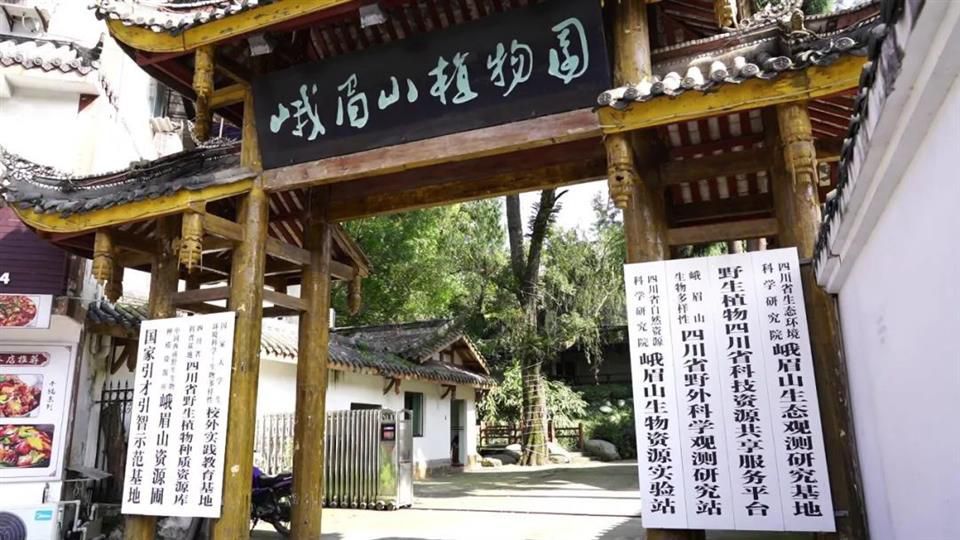 峨眉山植物园
四川省生态环境科学研究院 峨眉山生态观测研究基地
野生植物四川省科技资源共享服务平台
峨眉山生物多样性 四川省野外科学观测研究站
四川省自然资源科学研究院 峨眉山生物资源实验站
校外实践教育基地
四川省野生植物种质资源库
峨眉山资源圃
国家引才引智示范基地
本店推荐
干锅系列
4
Midea